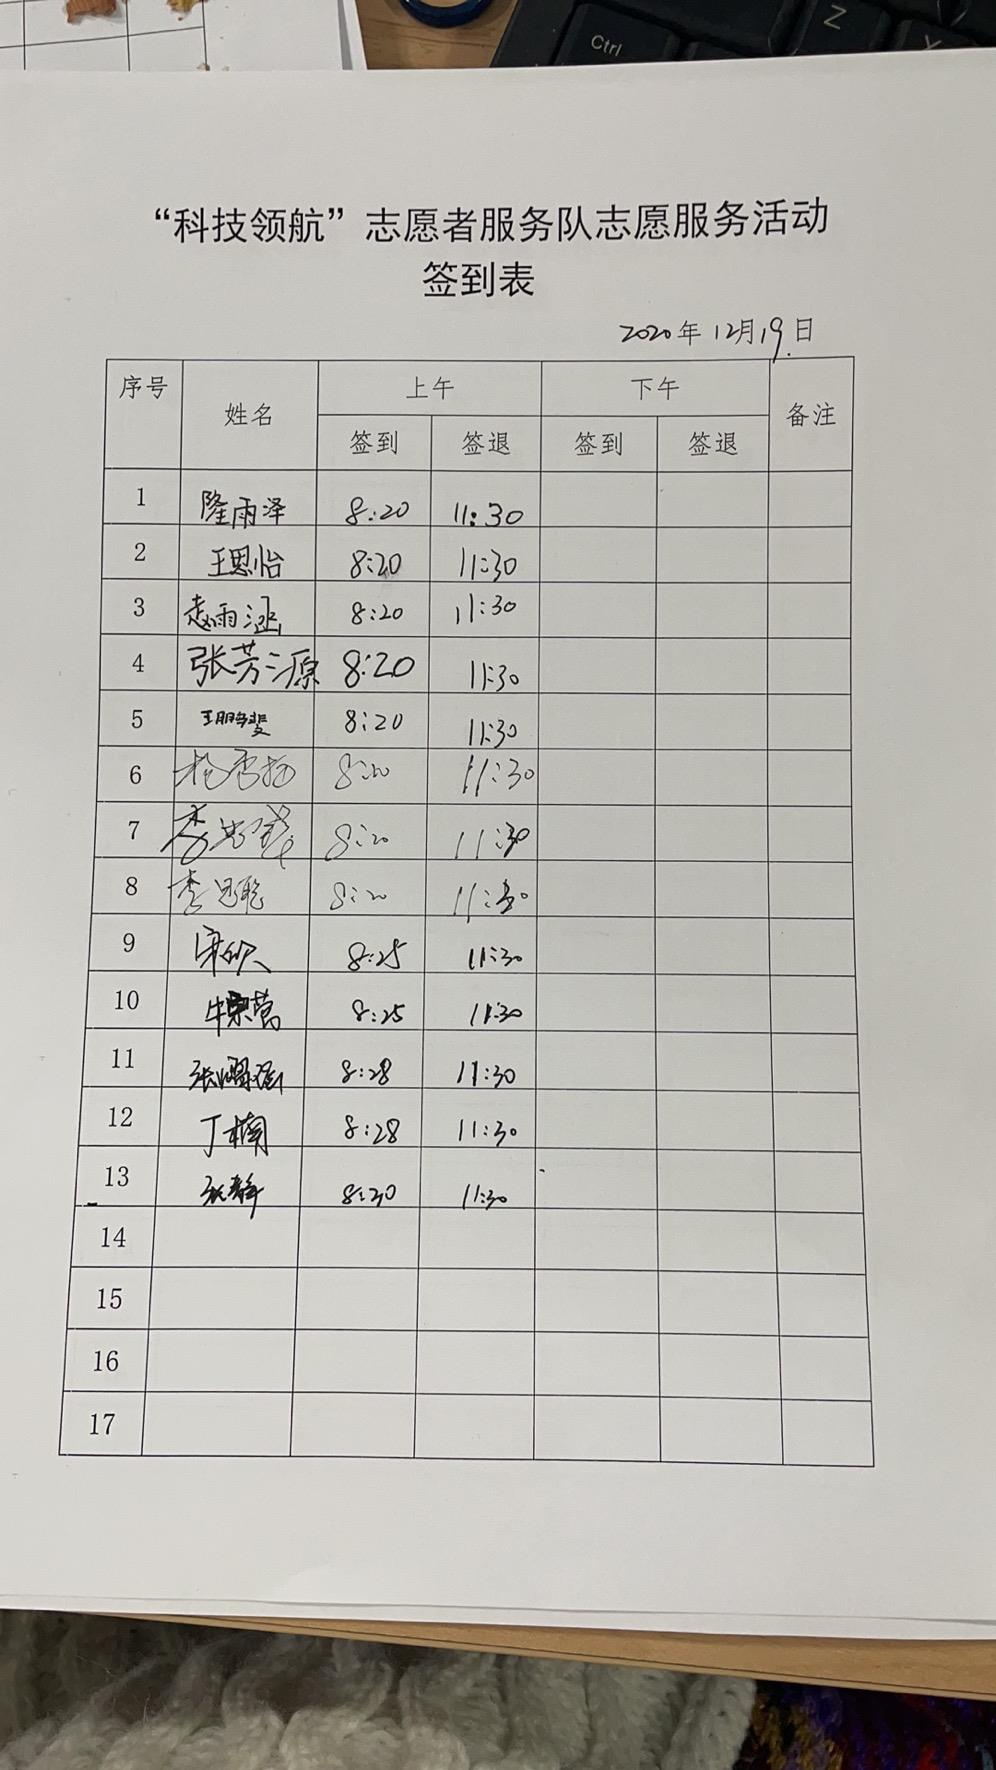 Ctrl
Z
X
“科技领航”志愿者服务队志愿服务活动
签到表
2020年12月19日
序号 姓名 上午 下午 备注
签到 签退 签到 签退
1 隆雨泽 8:20 11:30
2 王思怡 8:20 11:30
3 赵雨涵 8:20 11:30
4 张芳源 8:20 11:30
5 王鹏斐 8:20 11:30
6 8:20 11:30
7 李 8:20 11:30
8 李思聪 8:20 11:30
9 宋欣 8:25 11:30
10 牛荣莺 8:25 11:30
11 张 8:28 11:30
12 丁楠 8:28 11:30
13 张静 8:30 11:30
14
15
16
17